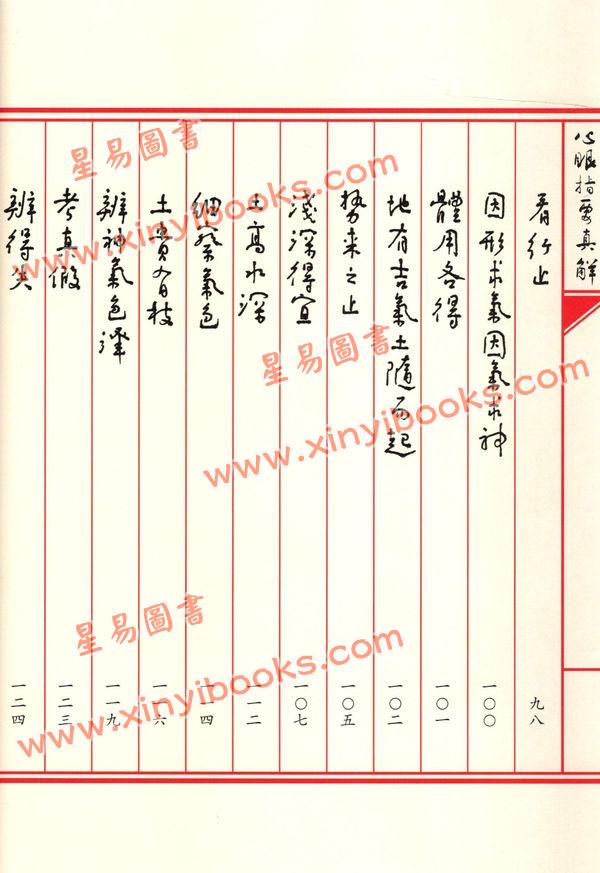 心眼指要真解
看行止
九八
因形求氣因氣求神
一〇〇
體用各得
一〇一
地有吉氣土隨而起
一〇二
勢来之止
一〇五
淺深得宜
一〇七
土高水深
一一二
細察氣色
一一四
土貴有枝
一一六
辨神氣色澤
一一九
考真假
一二三
辨得失
一二四
星易圖書
www.xinyibooks.com
星易圖書
www.xinyibooks.com
星易圖書
www.xinyibooks.com